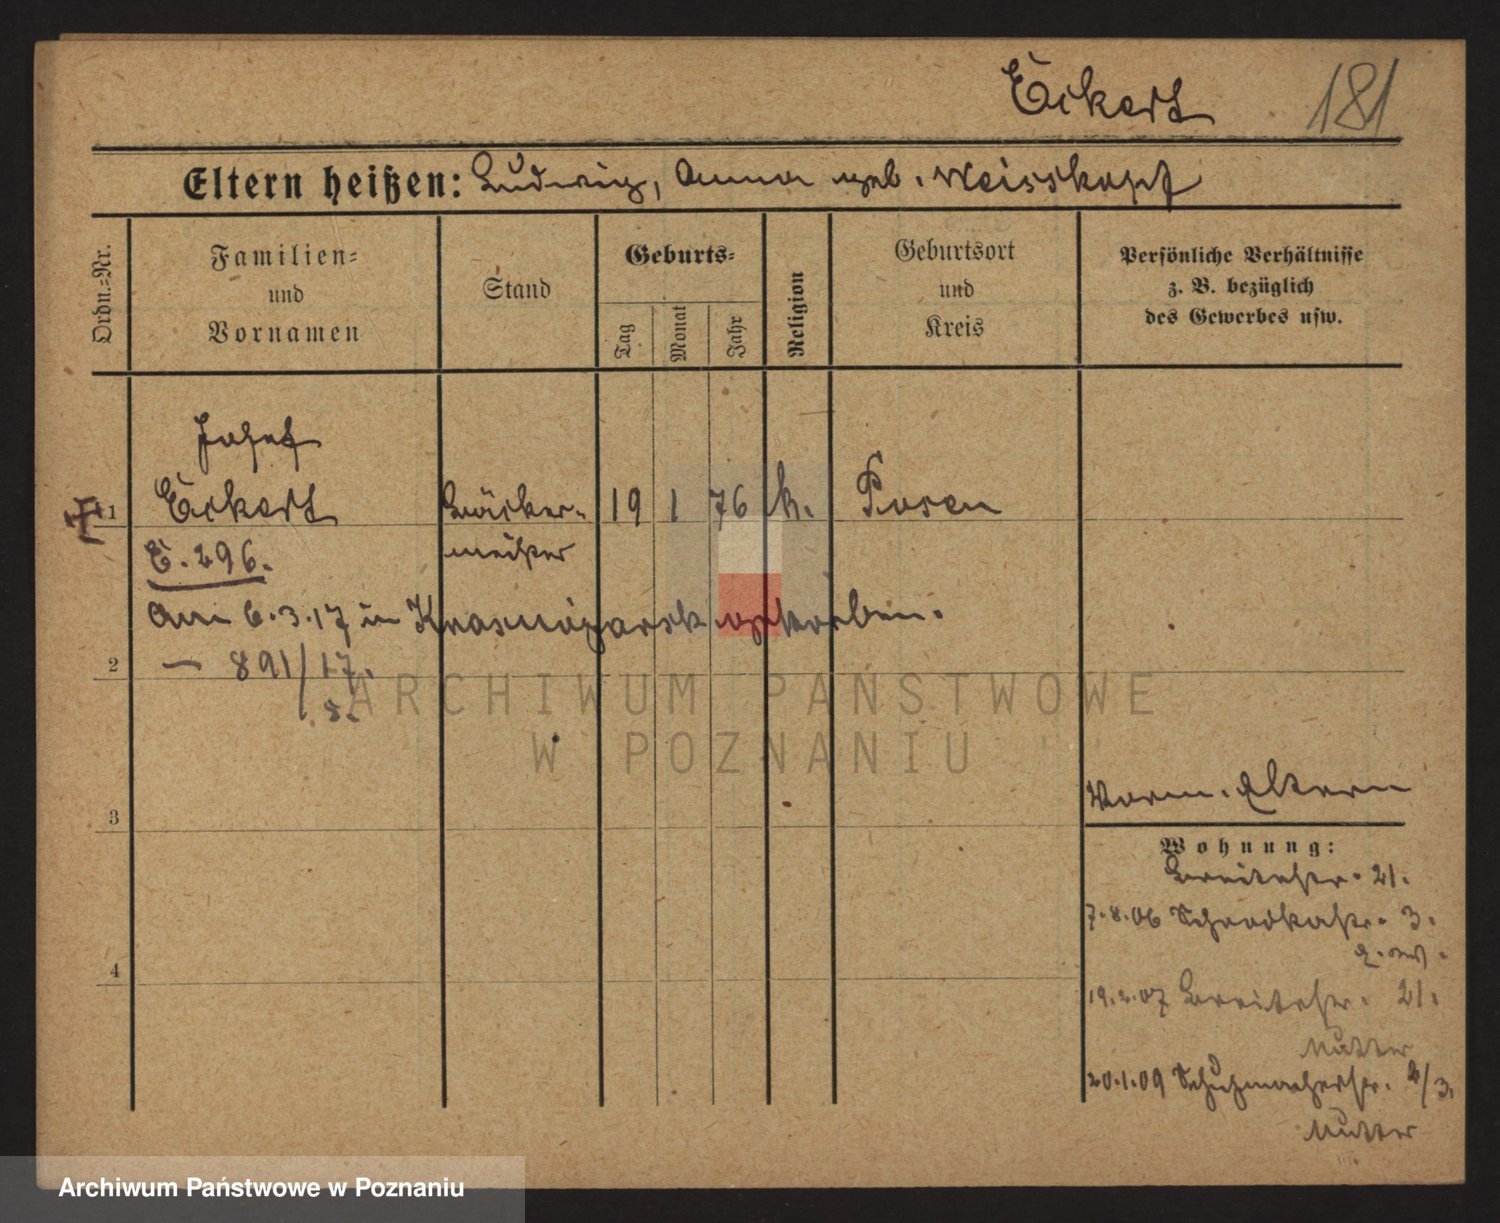 Eckert 181
Eltern heißen: Ludwig, Anna geb. Weisskopf
Ordn.-Nr.
Familien- und Vornamen
Stand
Geburts-
Tag Monat Jahr
Religion
Geburtsort und Kreis
Persönliche Verhältnisse z. B. bezüglich des Gewerbes usw.
Josef
1 Eckert Bäcker- 19 1 76 k. Posen
E. 296. meister
Am 6.3.17 in Krasnojarsk gestorben.
2 — 891/17.
ARCHIWUM PAŃSTWOWE
W POZNANIU
Vorm. Eltern
3
Wohnung:
Breitestr. 21.
7.8.06 Schrodkastr. 3.
4
19.2.07 Breitestr. 21.
Mutter
20.1.09 Schuhmacherstr. 2/3.
Mutter
Archiwum Państwowe w Poznaniu